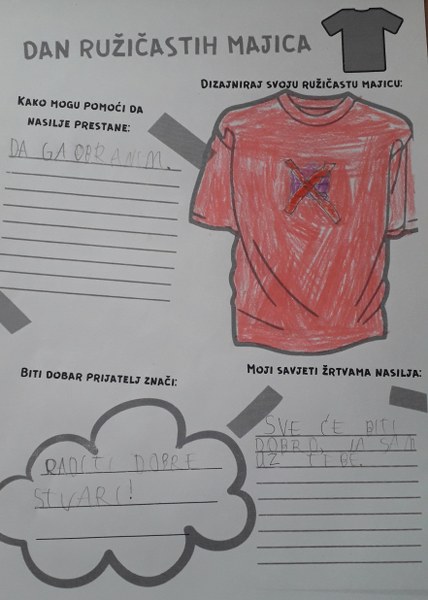 DAN RUŽIČASTIH MAJICA
DIZAJNIRAJ SVOJU RUŽIČASTU MAJICU:
KAKO MOGU POMOĆI DA
NASILJE PRESTANE:
DA GA OBRANIM.
BITI DOBAR PRIJATELJ ZNAČI:
RADITI DOBRE
STVARI!
MOJI SAVJETI ŽRTVAMA NASILJA:
SVE ĆE BITI
DOBRO. JA SAM
UZ TEBE.